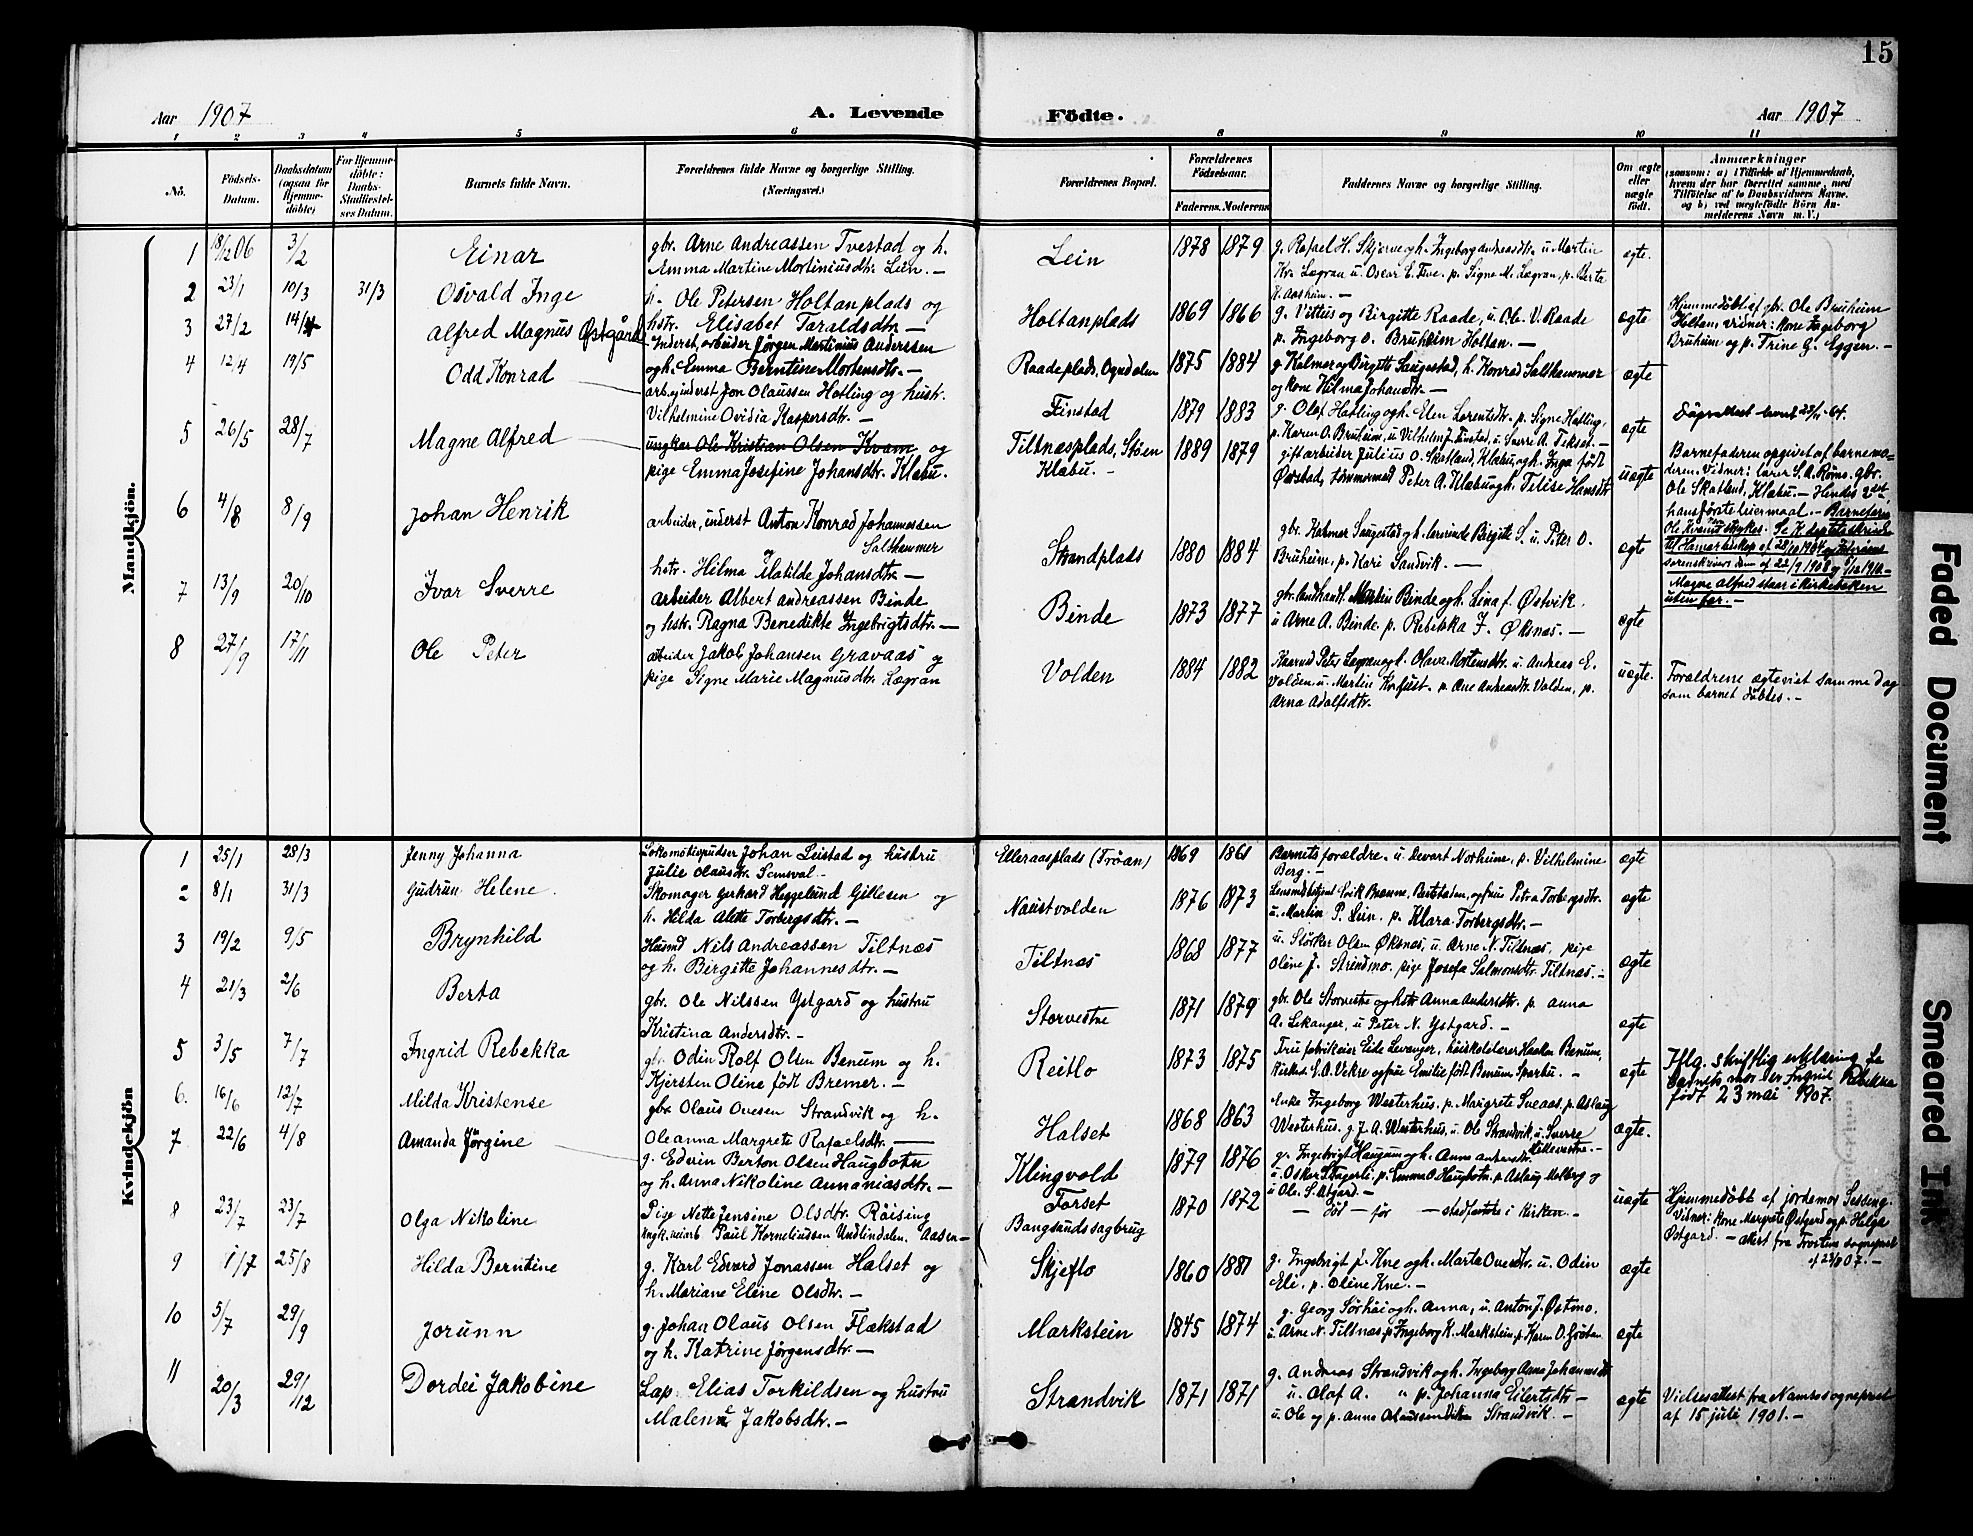 15
Aar 1907
A. Levende
Födte.
Aar 1907
1 2 3 4 5 6 8 9 10 11
No.
Födsels-
Datum.
Daabsdatum
(ogsaa for
Hjemme-
döbte)
For Hjemme-
döbte:
Daabs-
Stadfæstel-
ses Datum.
Barnets fulde Navn.
Forældrenes fulde Navne og borgerlige Stilling.
(Næringsvei.)
Forældrenes Bopæl.
Forældrenes
Födselsaar.
Faderens. Moderens
Faddernes Navne og borgerlige Stilling.
Om ægte
eller
uægte
födt.
Anmærkninger
(saasom: a) i Tilfælde af Hjemmedaab,
hvem der har forrettet samme, med
Tilföielse af to Daabsvidners Navne.
og b) ved uægtefödte Börn An-
melderens Navn m. V.)
Mandkjön.
1 18/12 06 3/2 Einar
gbr. Arne Andreassen Tvestad og h.
Emma Martine Mortiniusdtr. Lein. —
Lein 1878 1879
g. Rafael H. Skjerve og h. Ingeborg Andreasdtr. u. Martin
Kr. Lægran u. Oscar E. Tve. p. Signe M. Lægran, p. Berta
K. Aasheim. —
ægte.
2 23/1 10/3 31/3 Osvald Inge
h. Ole Petersen Holtanplads og
hstr. Elisabet Taraldsdtr. —
Holtanplads 1869 1866
g. Vittus og Birgitte Raade, u. Ole V. Raade
p. Ingeborg O. Bruheim Holtan. —
ægte
Hjemmedøbt af gbr. Ole Bruheim
Holtan, vidner: kone Ingeborg
Bruheim og p. Trine G. Eggen. —
3 27/2 14/4 Alfred Magnus Østgård
Inderst, arbeider Jørgen Martinius Anderssen
og h. Emma Berntine Mortensdtr. —
Raadeplads, Ogndalen 1875 1884
g. Kalmer og Birgitte Saugestad, h. Konrad Salthammer
og kone Hilma Johansdtr. —
ægte
4 12/4 19/5 Odd Konrad
arb. og inderst Jon Olaussen Hotling og hustr.
Vilhelmine Ovidia Kaspersdtr. —
Finstad 1879 1883
g. Olaf Hotling og h. Elen Lorentsdtr. p. Signe Hotling,
p. Karen O. Bruheim, u. Vilhelm J. Finstad, u. Sverre A. Teksas. —
ægte
5 26/5 28/7 Magne Alfred
ungkar Ole Kristian Olsen Kvam og
pige Emma Josefine Johansdtr. Klæbu.
Tiltnæsplads, Stöen
Klæbu. —
1889 1879
gift arbeider Julius O. Skatland, Klæbu, og h. Inga født
Ørstad, tømmermand Peter A. Klæbu og h. Tilise Hansdtr
uægte
Barnefaderen opgivet af barnemo-
deren. Vidner: lærer S. A. Römo. gbr.
Ole Skatland, Klæbu. — Hendes 2det,
hans første leiermaal. — Barnefaren
Magne Alfred staar i kirkeboken
uten far. —
6 4/8 8/9 Johan Henrik
arbeider, inderst Anton Konrad Johannessen
Salthammer
hstr. Hilma Matilde Johansdtr. —
Strandplads 1880 1884
gbr. Kalmer Saugestad og h. Birgitte S. u. Peter O.
Bruheim, p. Kari Sandvik. —
ægte
7 13/9 20/10 Ivar Sverre
Arbeider Albert Andreassen Binde
og hstr. Ragna Benedikte Ingebrigtsdtr. —
Binde 1873 1877
gbr. landhandl. Martin Binde og h. Lina f. Østvik.
u Arne A. Binde. p. Rebekka J. Øksnæs. —
ægte
8 27/9 17/11 Ole Peter
arbeider Jakob Johansen Gravaas og
pige Signe Marie Magnusdtr. Lægran
Volden 1884 1882
Peter Lægran og h. Olava Mortensdtr. u. Andreas E.
Volden u. Martin p. Ane Andreasdtr. Volden, p.
Arna Adolfsdtr.
uægte.
Forældrene ægteviet samme dag
som barnet döbtes. —
Kvindekjön
1 25/1 28/3 Jenny Johanna
Lokomotivpudser Johan Leistad og hustru
Julie Olausdtr. Semsval —
Elleraasplads (Tröan) 1869 1861
Barnets forældre. u. Nordheim, p. Vilhelmine
Berg. —
ægte
2 8/1 31/3 Gudrun Helene.
Skomager Gerhard Heggelund Gillesen og
h. Hilda Alette Torbergsdtr. —
Naustvolden 1876 1873
og frue Petra Torbergsdtr.
u. Martin P. Lein. p. Klara Torbergsdtr. —
ægte
3 19/2 9/5 Brynhild
Husmd Nils Andreassen Tiltnæs
og h. Birgitte Johannesdtr. —
Tiltnæs 1868 1877
u. Størker Olsen Øksnæs, u. Arne N. Tiltnæs, pige
Oline J. Strindmo, pige Josefa Salmonsdtr. Tiltnæs. —
ægte
4 21/3 2/6 Berta
gbr. Ole Nilssen Ystgard og hustru
Kristina Andersdtr. —
Storvestre 1871 1879
gbr. Ole Storvestre og hstr Anna Andersdtr. p. Anna
A. Lekanger, u Peter N. Ystgard. —
ægte
5 3/5 7/7 Ingrid Rebekka
gbr. Odin Rolf Olsen Benum og h.
Kjersten Oline født Bremer. —
Reitlo 1873 1875
Eide Levanger, höiskolelærer Haakon Benum,
E. A. Vekre og frue Emilie født Benum Sparbu. —
ægte
Iflg. skriftlig erklæring fra
barnets mor er Ingrid Rebekka
født 23 mai 1907.
6. 16/6 12/7 Milda Kristense
gbr. Olaus Ovesen Strandvik og h.
Oleanna Margrete Rafaelsdtr. —
Halset 1868 1863
Enke Ingeborg Westerhus. p. Margrete Sveaas, p. Aslaug
Westerhus. g. J. A. Westerhus, u. Ole Strandvik, u. Sverre
ægte.
7 22/6 4/8 Amanda Jørgine
g. Edvin Berton Olsen Haugbotn
og h. Anna Nikoline Annaniasdtr. —
Klingvold 1879 1876
g. Ingebrigt Haugum og h. Anna Andersdtr.
u. Oskar p. Emma O. Haugbotn. p. Aslaug Molberg og
u Ole. S. Øtgard. —
8 23/7 23/7 Olga Nikoline
Pige Nette Jensine Olsdtr. Röising
ungk. Paul Korneliussen Undlindalen. Aasen —
Forset
Bangsundssagbrug
1870 1872
stadfæstet i kirken. —
uægte
Hjemmedöbt af jordemor Sessing.
Vidner: kone Margrete Østgard og p. Helga
Østgard. —
9 1/7 25/8 Hilda Berntine
g. Karl Edvard Jonassen Halset og
h. Mariane Eline Olsdtr. —
Skjeflo 1860 1881
g. Ingebrigt J. Kne og h. Marta Ovesdtr. u. Odin
Eli, p. Oline Kne. —
ægte
10 5/7 29/9 Jorunn
g. Johan Olaus Olsen Flækstad
og h. Katrine Jørgensdtr. —
Markstein 1845 1874
g. Georg Sørhöi og h. Anna, u. Anton J. Østmo.
u. Arne N. Tiltnæs, p. Ingeborg K. Markstein, p. Karen O. Gröten
ægte
11 20/3 29/12 Dordei Jakobine
Lap Elias Torkildsen og hustru
Malene Jakobsdtr. —
Strandvik 1871 1871
g. Andreas Strandvik og h. Ingeborg Anna Johannesdtr
u. Olaf A. " p. Johanna Eilertsdtr —
u. Ole og p. Anna Olaussen Strandvik. —
ægte
Vielsesattest fra Namsos sogneprest
af 15 juli 1901. —
Faded Document
Smeared Ink